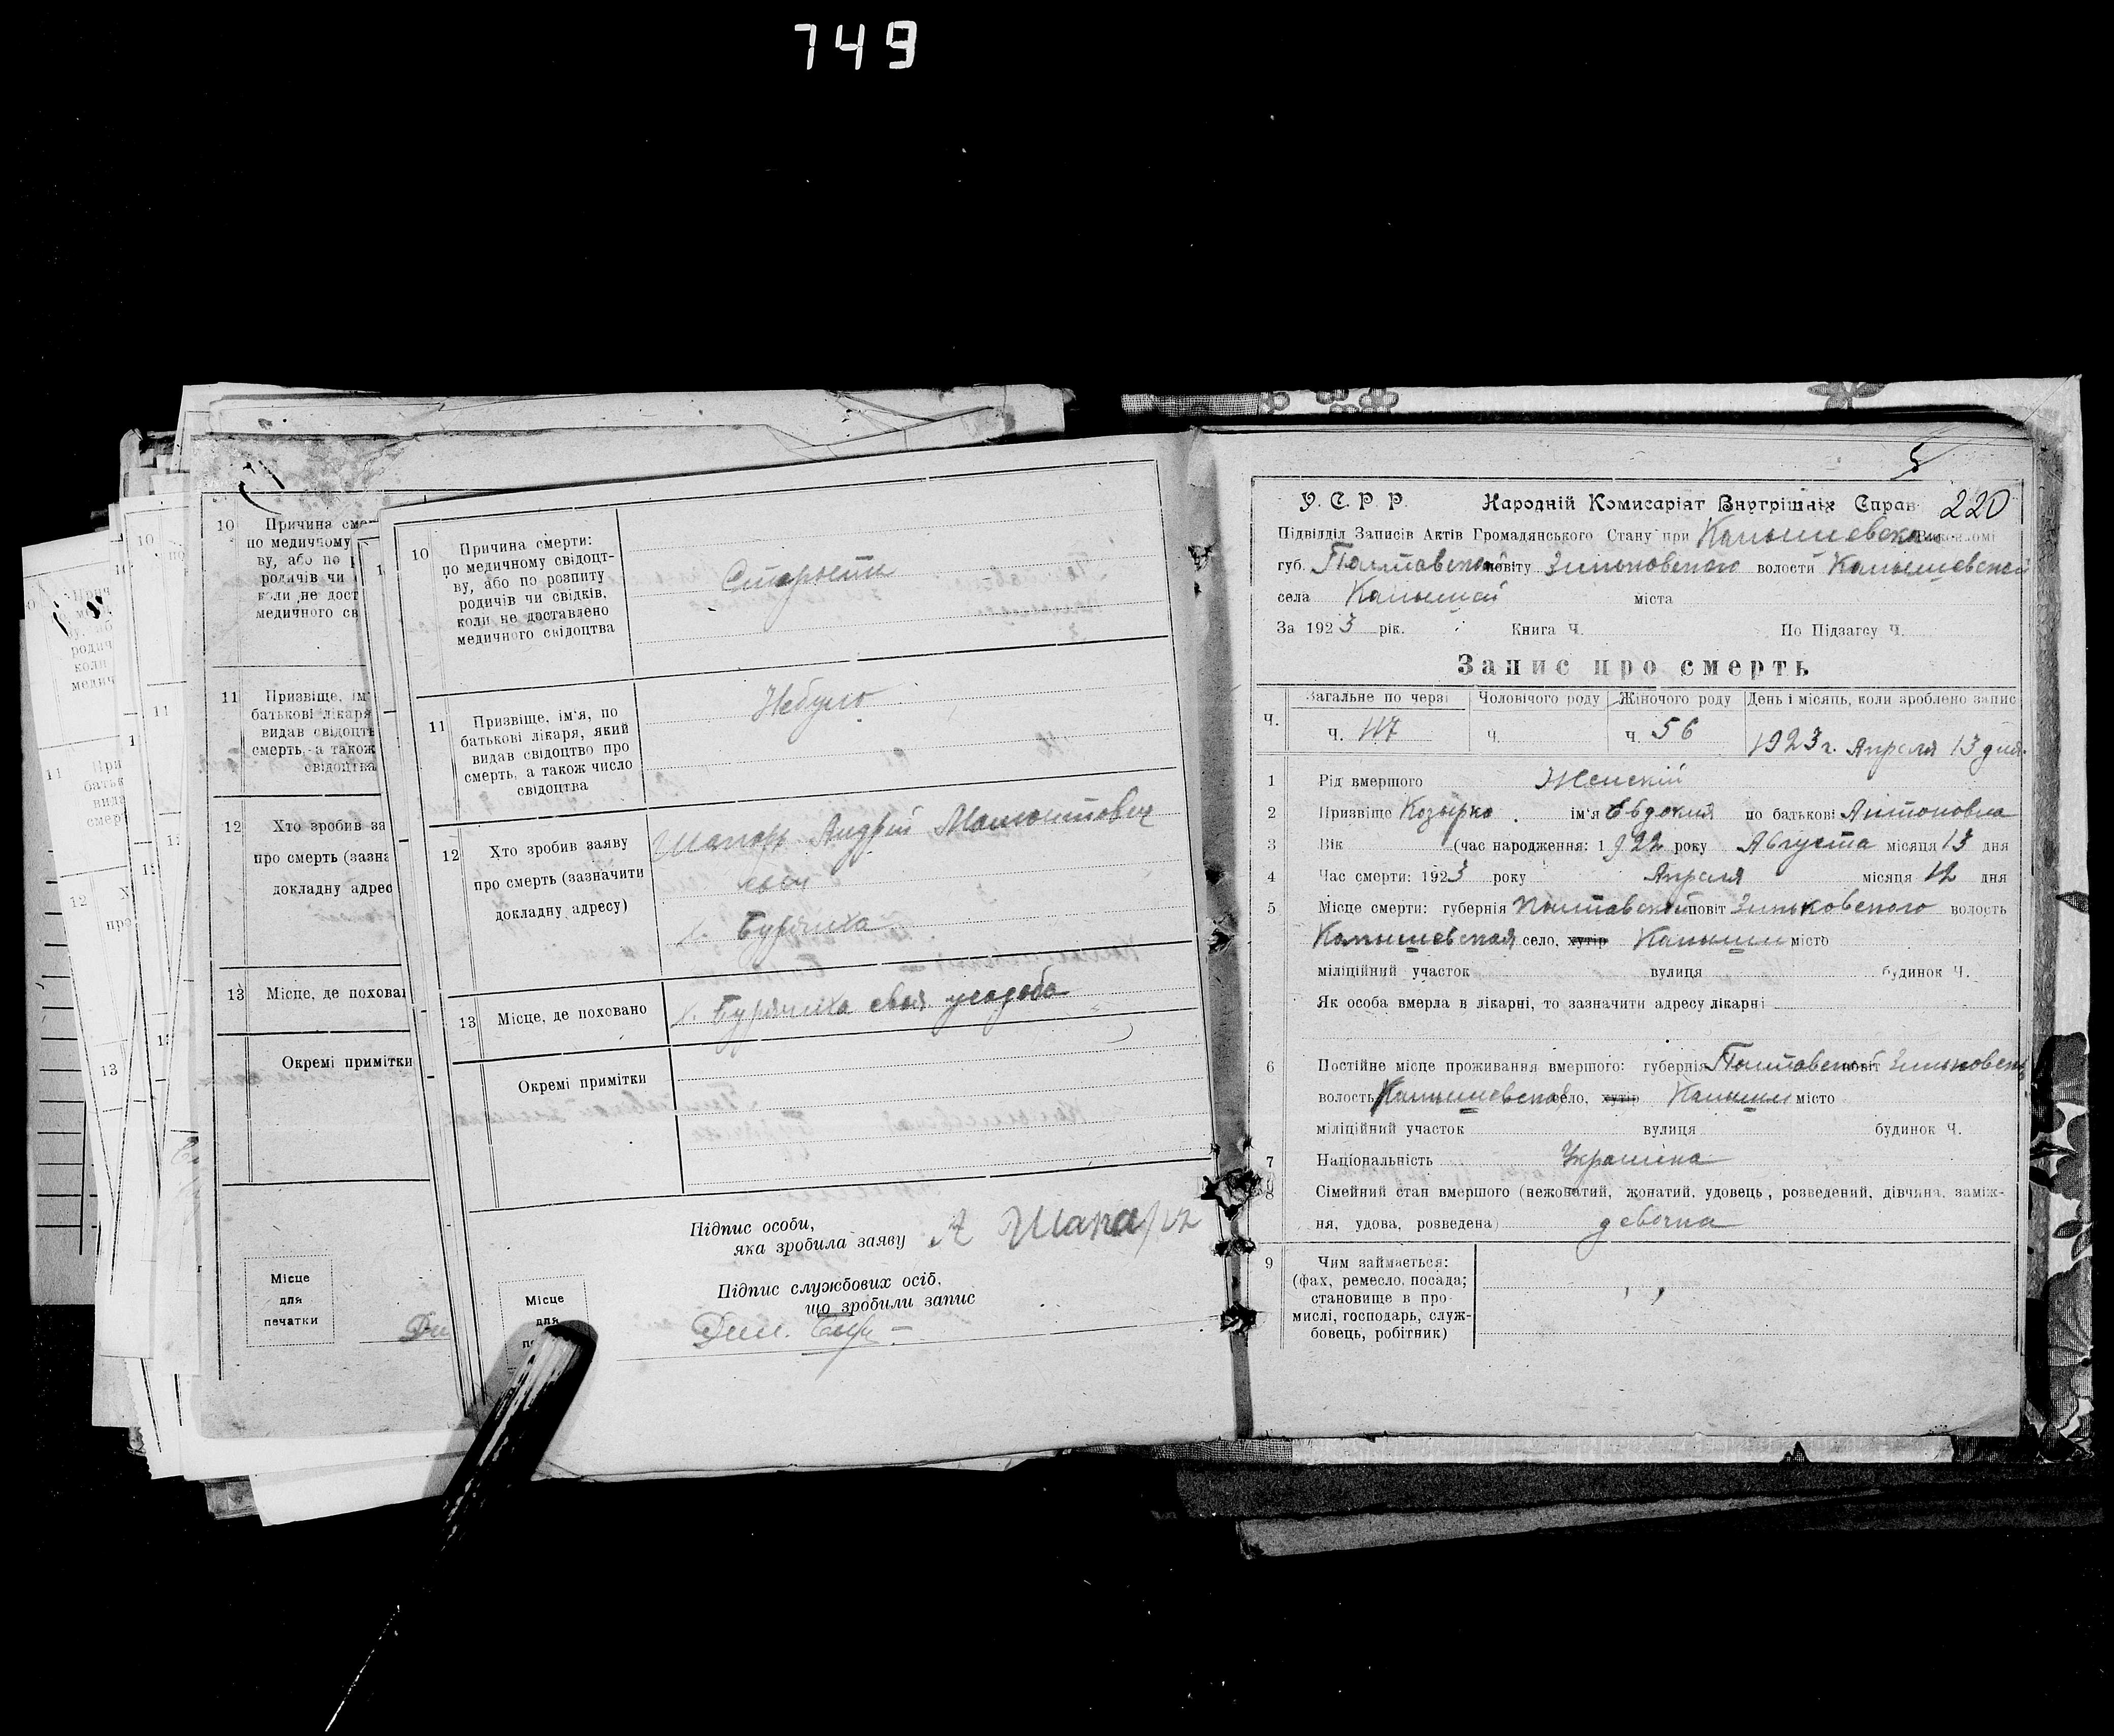 749
10
Причина сме-
по медичному
ву, або по р
родичів чи
коли не дост
медичного св
11
Призвіще, ім'
батькові лікаря
видав свідоцть
смерть, а також
свідоцтва
12
Хто зробив за
про смерть (зазна
докладну адрес
13
Місце, де похован
Окремі примітки
Місце
для
печатки
10
Причина смерти:
по медичному свідоцт-
ву, або по розпиту
родичів чи свідків,
коли не доставлено
медичного свідоцтва
Старости
11
Призвіще, ім'я, по
батькові лікаря, який
видав свідоцтво про
смерть, а також число
свідоцтва
Небуло
12
Хто зробив заяву
про смерть (зазначити
докладну адресу)
Шапарь Андрей
сын
х. Буряниха
13
Місце, де поховано
х. Буряниха своя усадьба
Окремі примітки
Підпис особи,
яка зробила заяву
А Шапарь
Підпис службових осіб,
що зробили запис
Місце
для
220
У. С. Р. Р. Народній Комисаріят Внутрішніх Справ
Підвідділ Записів Актів Громадянського Стану при Камышевском Виконкомі
губ. Полтавской повіту Зиньковского волости Камышевской
села Камышей міста
За 1923 рік. Книга Ч. По Підзагсу Ч.
Запис про смерть
Ч.
Загальне по черзі Чоловічого роду Жіночого роду День і місяць, коли зроблено запис
ч. 117 ч. ч. 56 1923 г. Апреля 13 дня.
1 Рід вмершого Женскій
2 Призвіще Козырко ім'я Евдокия по батькові Антоновна
3 Вік (час народження: 1922 року Августа місяця 13 дня
4 Час смерти: 1923 року Апреля місяця 12 дня
5 Місце смерти: губернія Полтавской повіт Зиньковского волость
Камышевская село, хутір Камыши місто
міліційний участок вулиця будинок Ч.
Як особа вмерла в лікарні, то зазначити адресу лікарні
6 Постійне місце проживання вмершого: губернія Полтавской повіт Зиньковск
волость Камышевская село, хутір Камыши місто
міліційний участок вулиця будинок Ч.
7 Національність Украинка
8 Сімейний стан вмершого (нежонатий, жонатий, удовець, розведений, дівчина, заміж-
ня, удова, розведена) девочка
9 Чим займається:
(фах, ремесло, посада;
становище в про-
мислі, господарь, служ-
бовець, робітник)